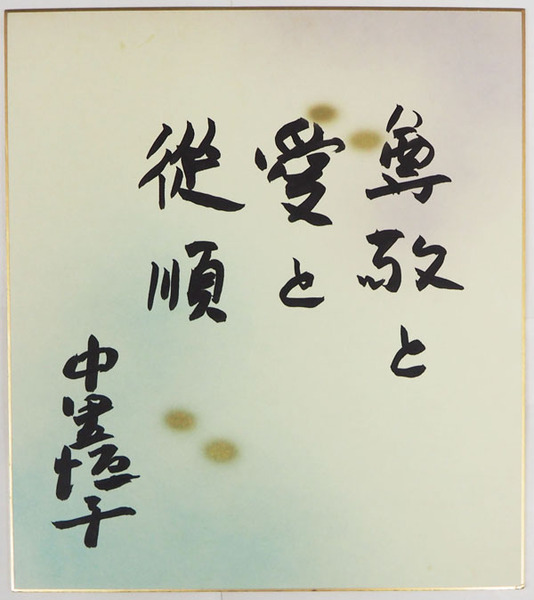 尊敬と
愛と
從順
中里恒子